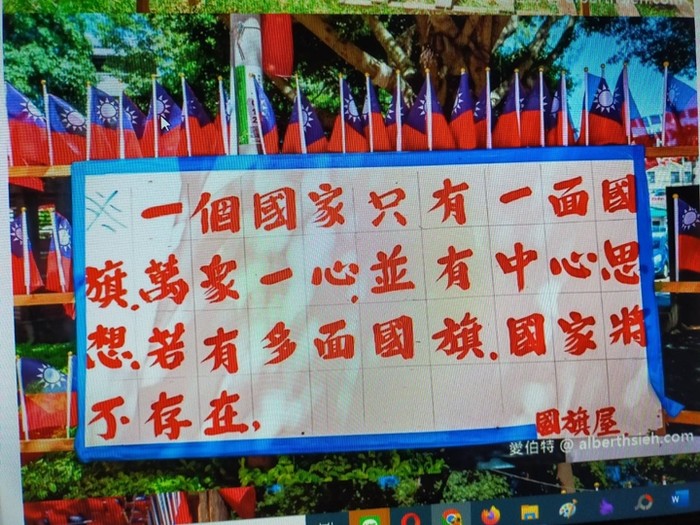 ※一個國家只有一面國
旗.萬眾一心,並有中心思
想.若有多面國旗.國家將
不存在,
國旗屋.
愛伯特 @ alberthsieh.com